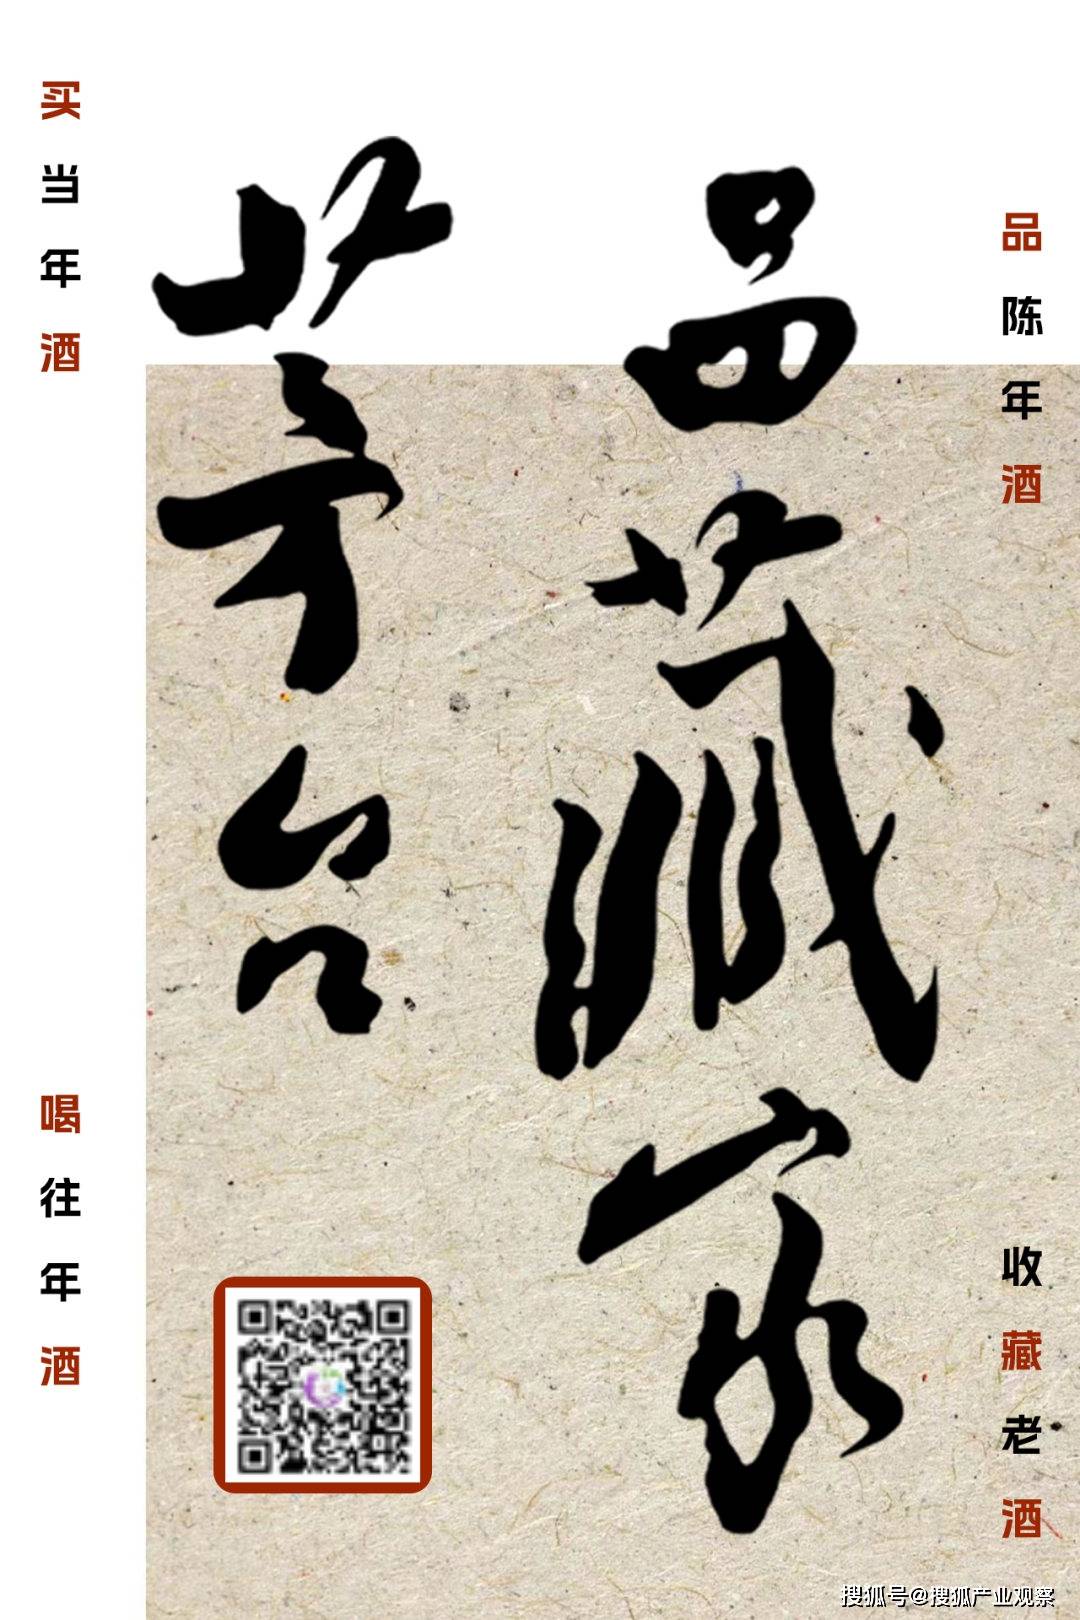 品藏家
茅台
买当年酒
喝往年酒
品陈年酒
收藏老酒
搜狐号@搜狐产业观察